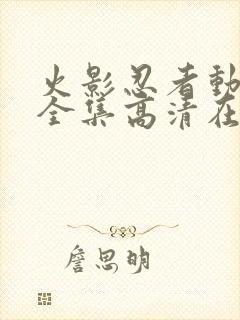 火影忍者動
全集高清在
詹思明